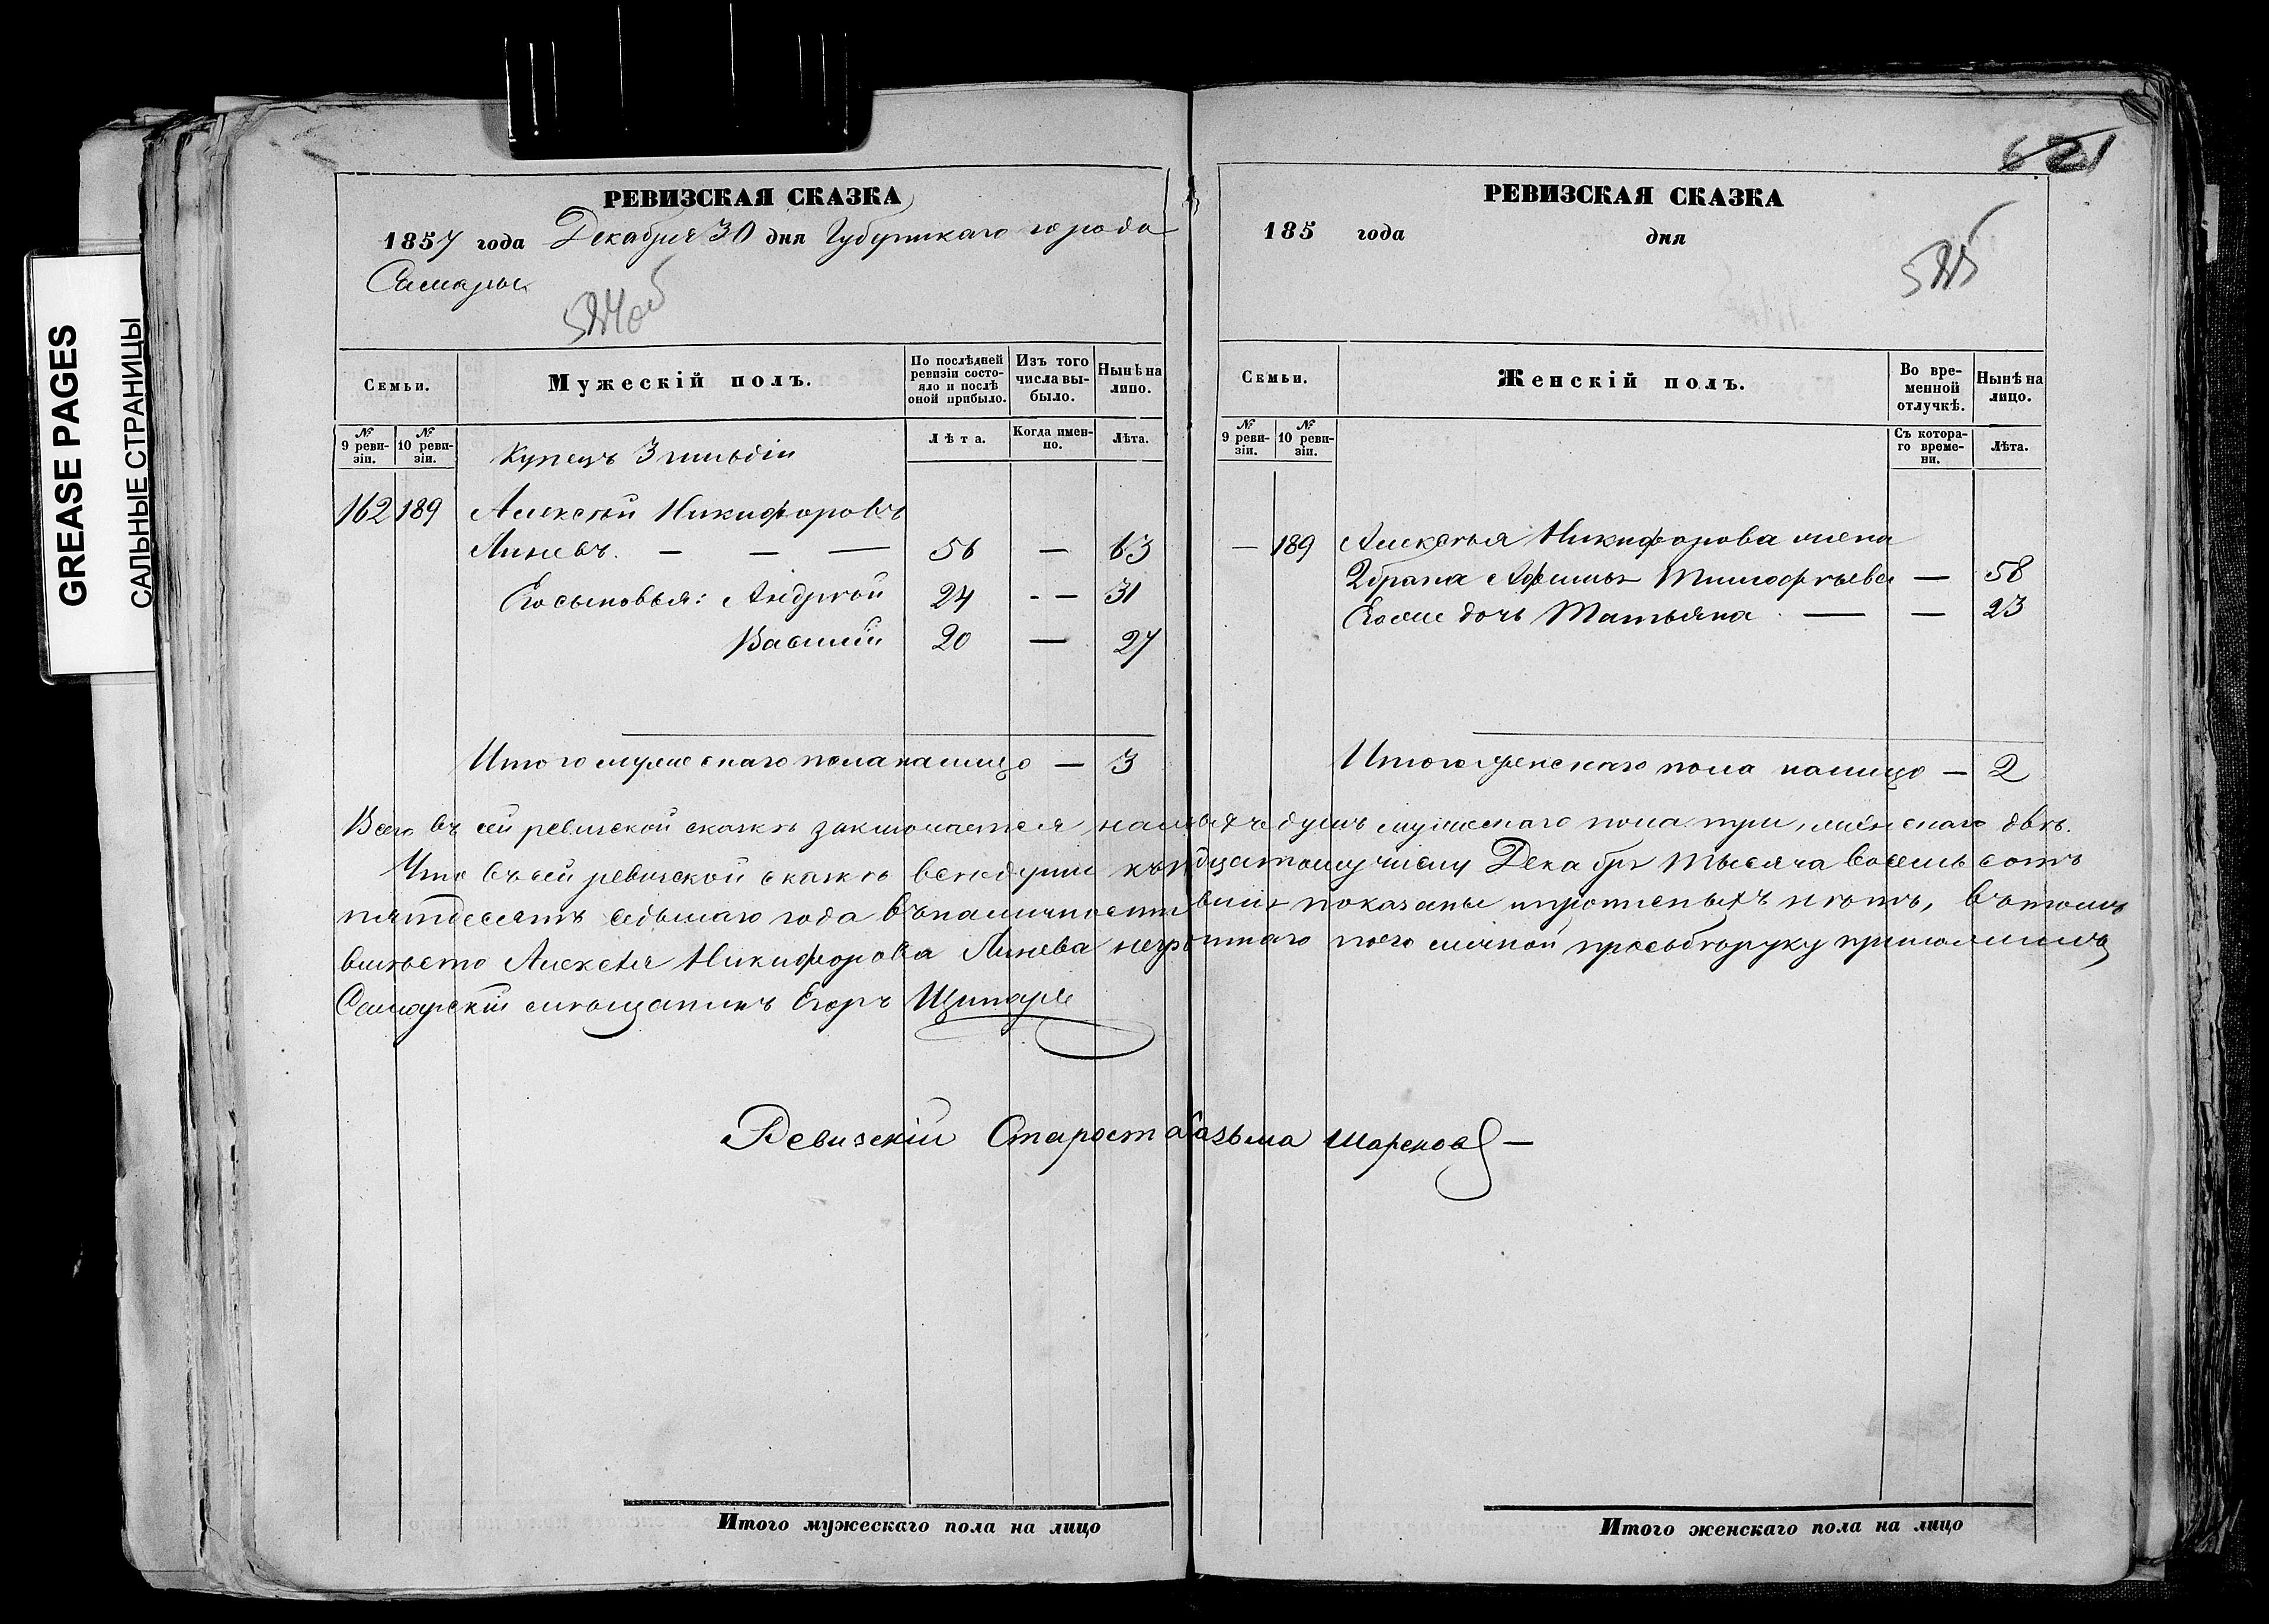 GREASE PAGES
САЛЬНЫЕ СТРАНИЦЫ
РЕВИЗСКАЯ СКАЗКА
1857 года Декабря 30 дня Губернскаго города
Самары
Семьи.
Мужескій полъ.
По послѣдней ревизіи состояло и послѣ оной прибыло.
Изъ того числа выбыло.
Нынѣ на лицо.
№ 9 ревизіи.
№ 10 ревизіи.
Лѣта.
Когда именно.
Лѣта.
Купецъ 3 гильдіи
162 189 Алексѣй Никифоровъ
Линевъ. — — — 56 — 63
Его сыновья: Андрѣй 24 - — 31
Василій 20 — 27
Итого мужескаго пола налицо — 3
РЕВИЗСКАЯ СКАЗКА
185 года дня
621
Семьи.
Женскій полъ.
Во временной отлучкѣ.
Нынѣ на лицо.
№ 9 ревизіи.
№ 10 ревизіи.
Съ котораго времени.
Лѣта.
— 189 Алексѣя Никифорова жена
2 брака Афимья Тимофѣева — 58
Его же дочь Татьяна — — 23
Итого женскаго пола налицо — 2
Всего въ сей ревизской сказкѣ заключается наличныхъ душъ мужескаго пола три, женскаго двѣ.
Что въ сей ревизской сказкѣ всѣ души къ тридцатому числу Декабря тысяча восемь сотъ
пятдесятъ седьмаго года въ наличности бывшія показаны и прописныхъ нѣтъ, въ томъ
вмѣсто Алексѣя Никифорова Линева неграмотнаго по его личной прозьбѣ руку приложилъ
Самарскій мѣщанинъ Егоръ
Ревизскій Староста Козьма
Итого мужескаго пола на лицо
Итого женскаго пола на лицо